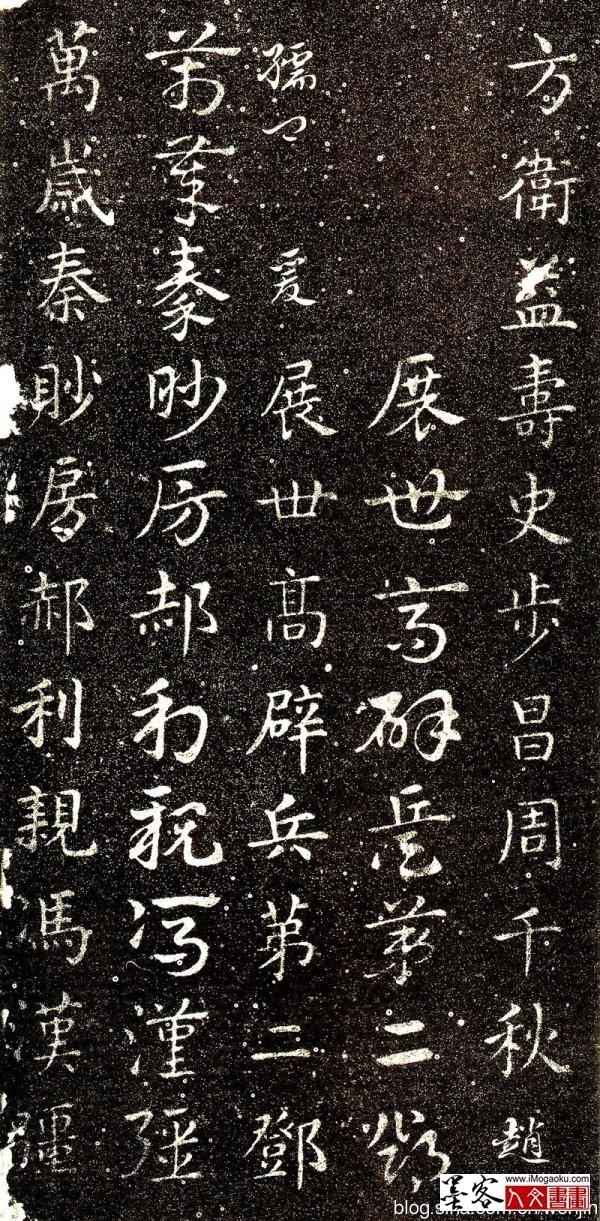 方衛益壽史步昌周千秋趙
展世高辟兵第二鄧
孺卿 爰展世高辟兵第二鄧
萬歲秦眇房郝利親馮漢彊
萬歲秦眇房郝利親馮漢彊
墨客
www.iMogaoku.com
人文書畫